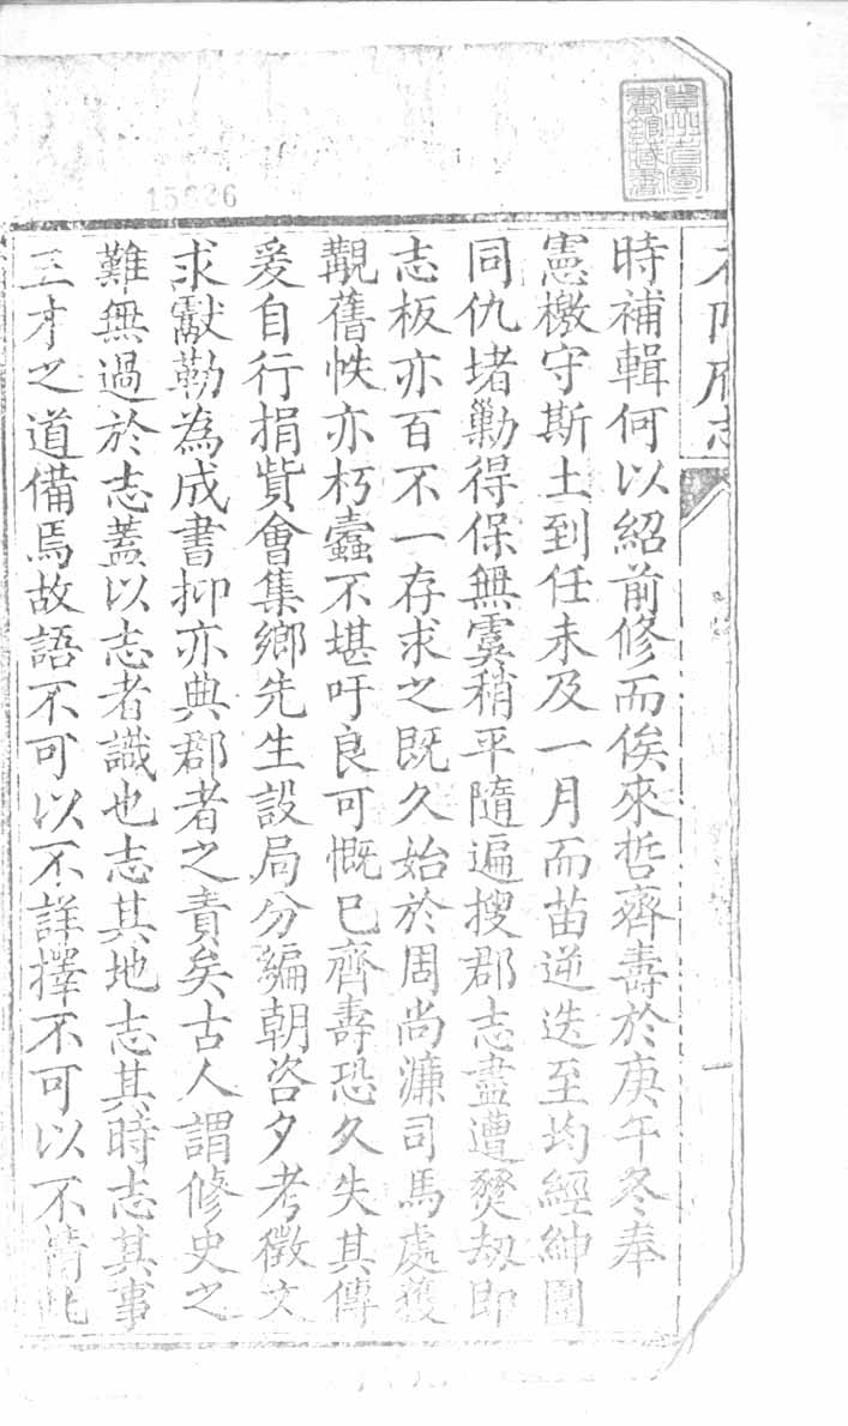 時補輯何以紹前修而俟來哲齊壽於庚午冬奉
憲檄守斯土到任未及一月而苗逆迭至均經紳團
同仇堵勦得保無虞稍平隨遍搜郡志盡遭燹劫即
志板亦百不一存求之既久始於周尚濂司馬處獲
覯舊帙亦朽蠹不堪吁良可慨已齊壽恐久失其傳
爰自行捐貲會集鄉先生設局分編朝咨夕考徵文
求獻勒為成書抑亦典郡者之責矣古人謂修史之
難無過於志蓋以志者識也志其地志其時志其事
三才之道備焉故語不可以不詳擇不可以不精此
府志
一
貴州省圖書館藏書
15826